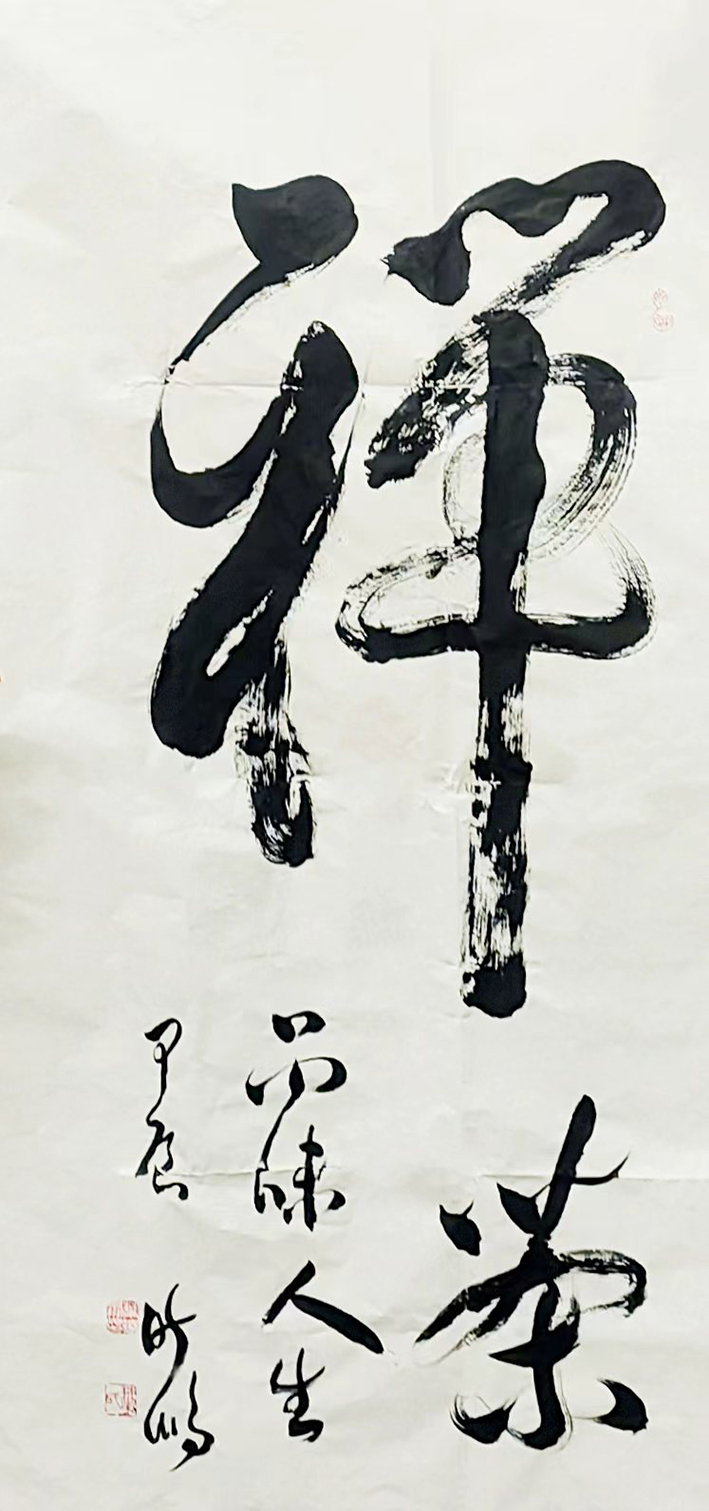 禅茶
品味人生
甲辰